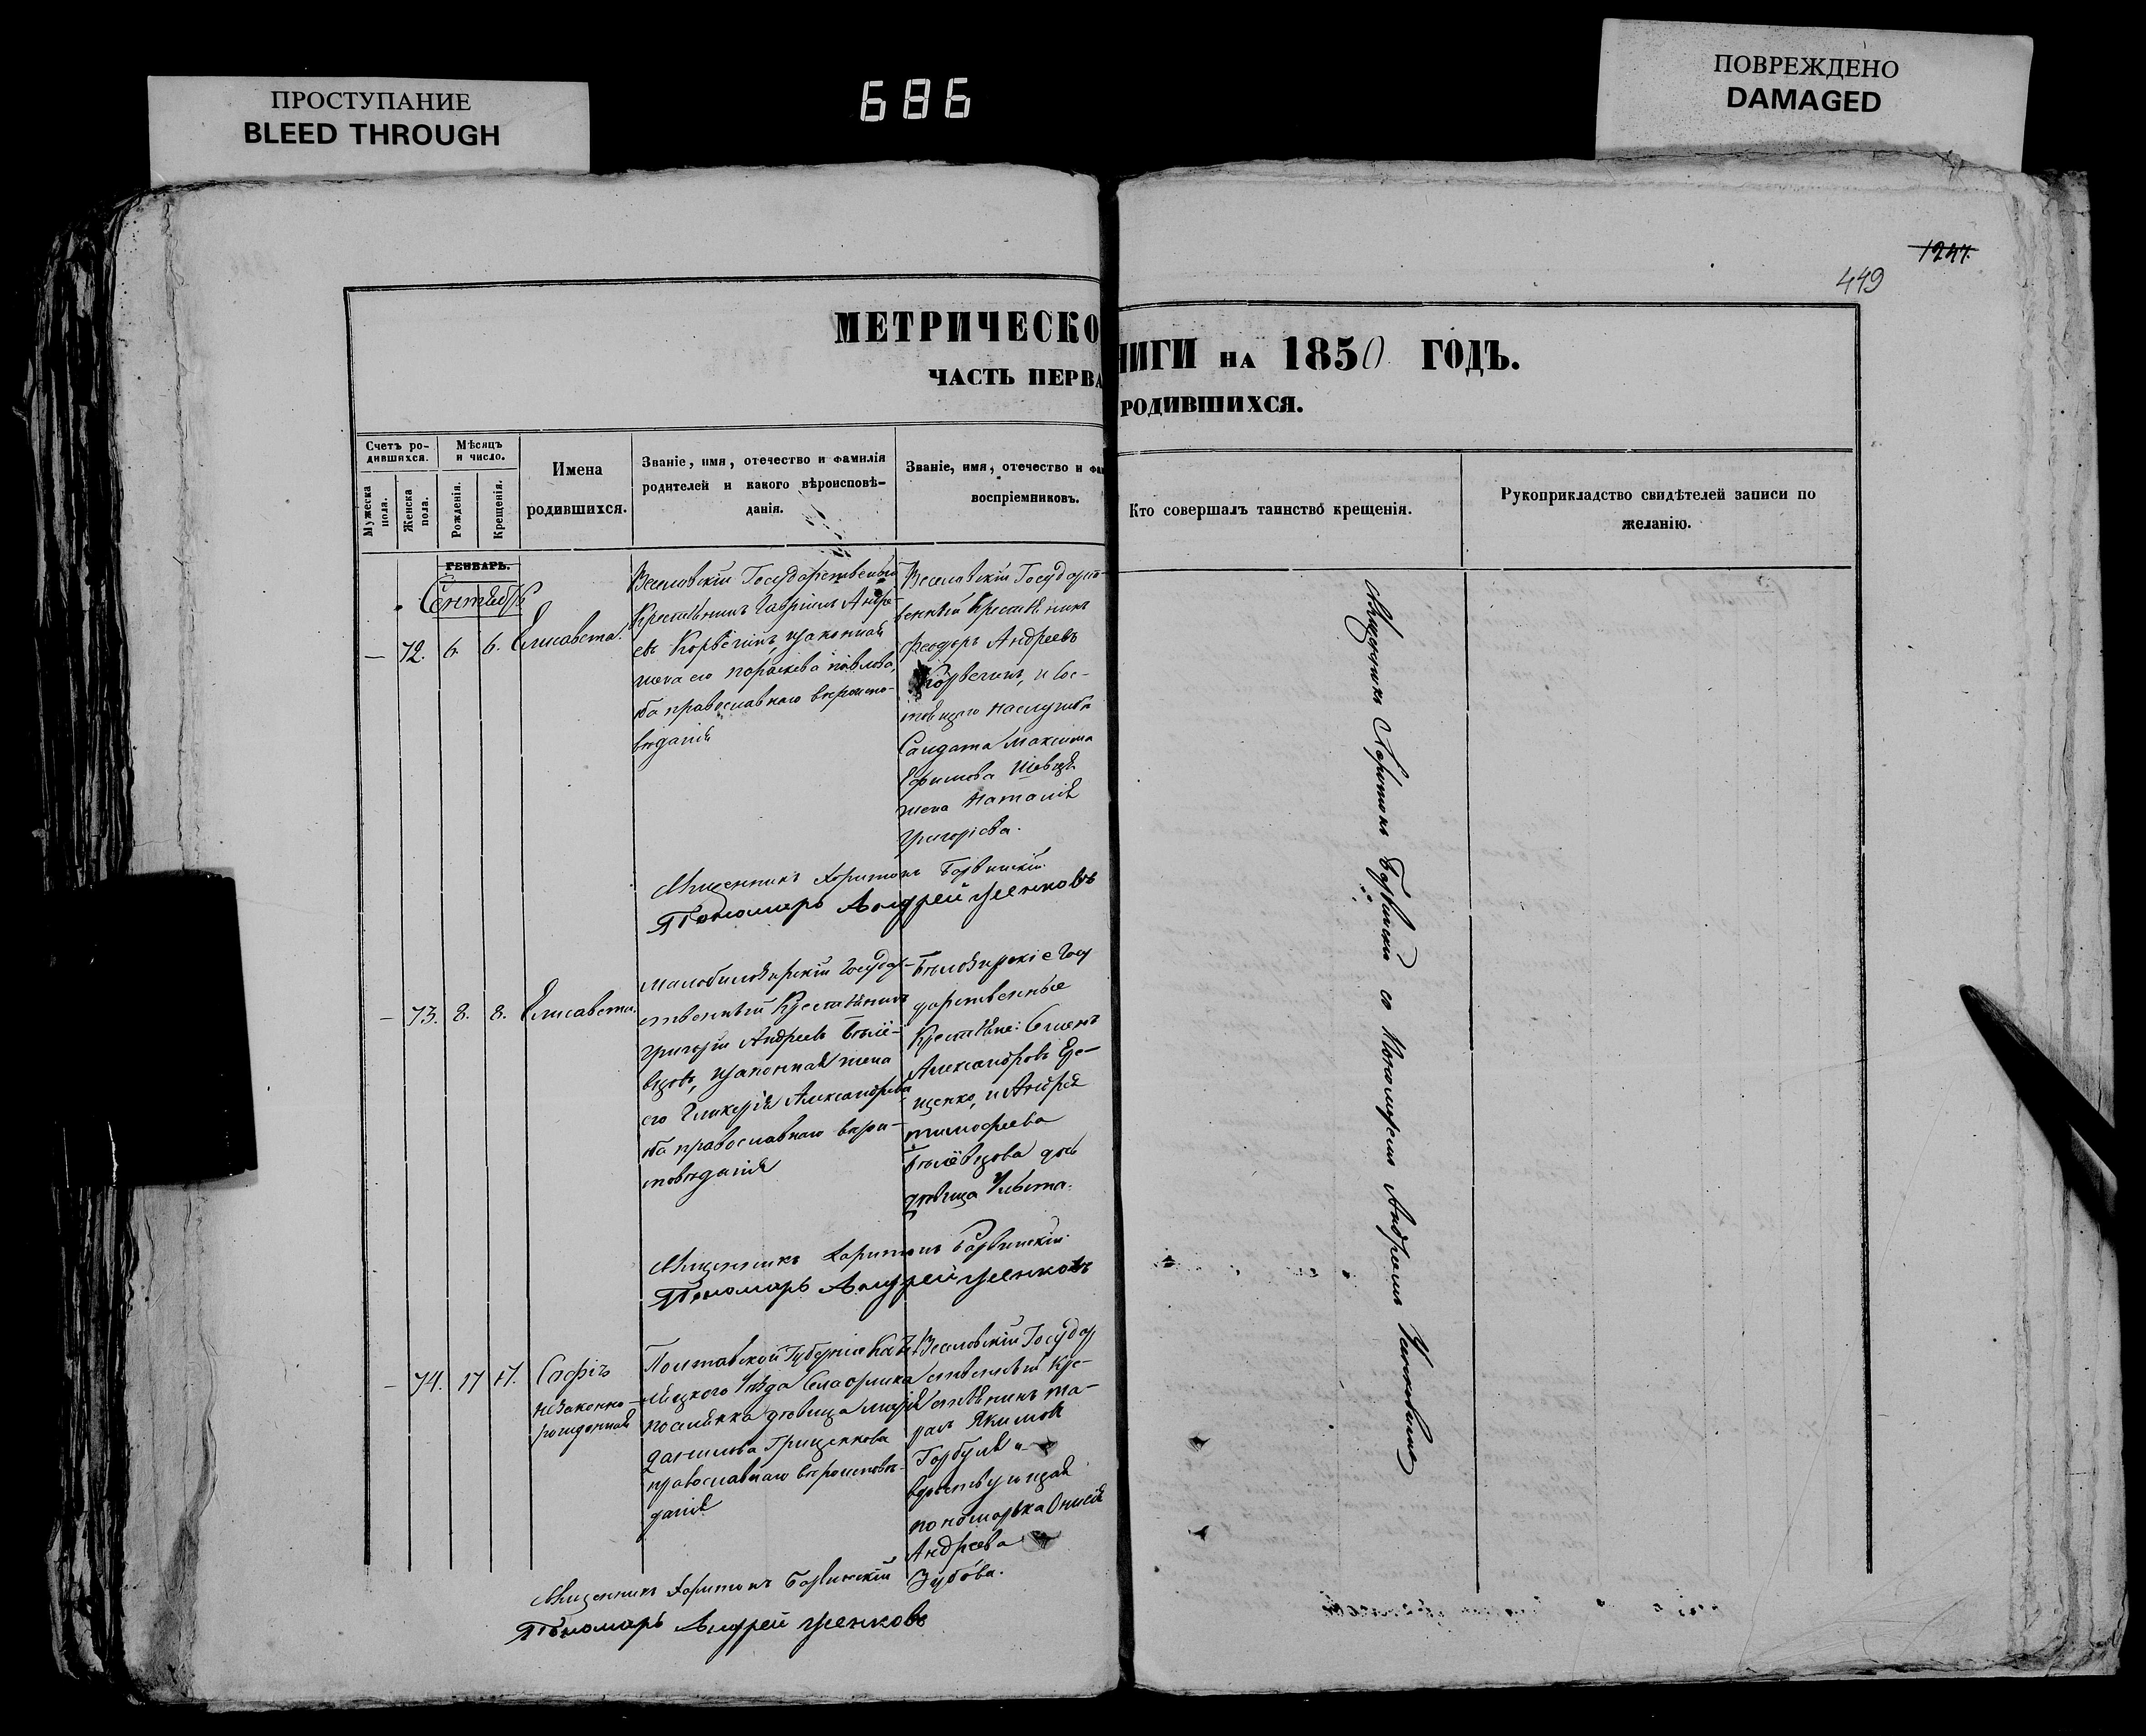 ПРОСТУПАНИЕ
BLEED THROUGH
686
ПОВРЕЖДЕНО
DAMAGED
1247.
449
МЕТРИЧЕСКО
НИГИ НА 1850 ГОДЪ.
ЧАСТЬ ПЕРВА
РОДИВШИХСЯ.
Счетъ ро-
дившихся.
Мужеска
пола.
Женска
пола.
Мѣсяцъ
и число.
Рожденія.
Крещенія.
Имена
родившихся.
Званіе, имя, отечество и фамилія
родителей и какого вѣроисповѣ-
данія.
Званіе, имя, отечество и фам
воспріемниковъ.
Кто совершалъ таинство крещенія.
Рукоприкладство свидѣтелей записи по
желанію.
ГЕНВАРЬ.
Сентябрь
— 72. 6. 6. Елисавета.
Веселовскій Государственный
Крестьянинъ Гавріилъ Андре-
евъ законная
жена его Параскева Павлова,
оба православнаго вѣроиспо-
вѣданія
Веселовскій Государст-
венный Крестьянинъ
Феодоръ Андреевъ
и сос-
тоящаго на службѣ
Солдата Максима
Ефимова
жена Наталія
Григорьева.
Священникъ Харитонъ
Пономарь Андрей Усенковъ
— 73. 8. 8. Елисавета.
Малобѣлозерскій Государ-
ственный Крестьянинъ
Григорій Андреевъ Бѣлё-
вцовъ, законная жена
его Гликерія Александрова
оба православнаго вѣрои-
сповѣданія
Бѣлозерскіе Госу
дарственные
Крестьяне: Семенъ
Александровъ Ере-
щенко, и Андрея
Тимофеева
Бѣлёвцова дочь
дѣвица
Священникъ Харитонъ
Пономарь Андрей Усенковъ
— 74. 17 17. Софія
незаконно-
рожденная
Полтавской Губерніи
Уѣзда Села Орлика
дѣвица Марія
Данилова Грищенкова
православнаго вѣроисповѣ-
данія
Веселовскій Государ
ственный Кре-
стьянинъ
Якимовъ
Горбуля и
вдовствующая
пономарка Анисія
Андреева
Зубова.
Священникъ Харитонъ
Пономарь Андрей Усенковъ
Священникъ Харитонъ со Пономаремъ Андреемъ Усенковымъ